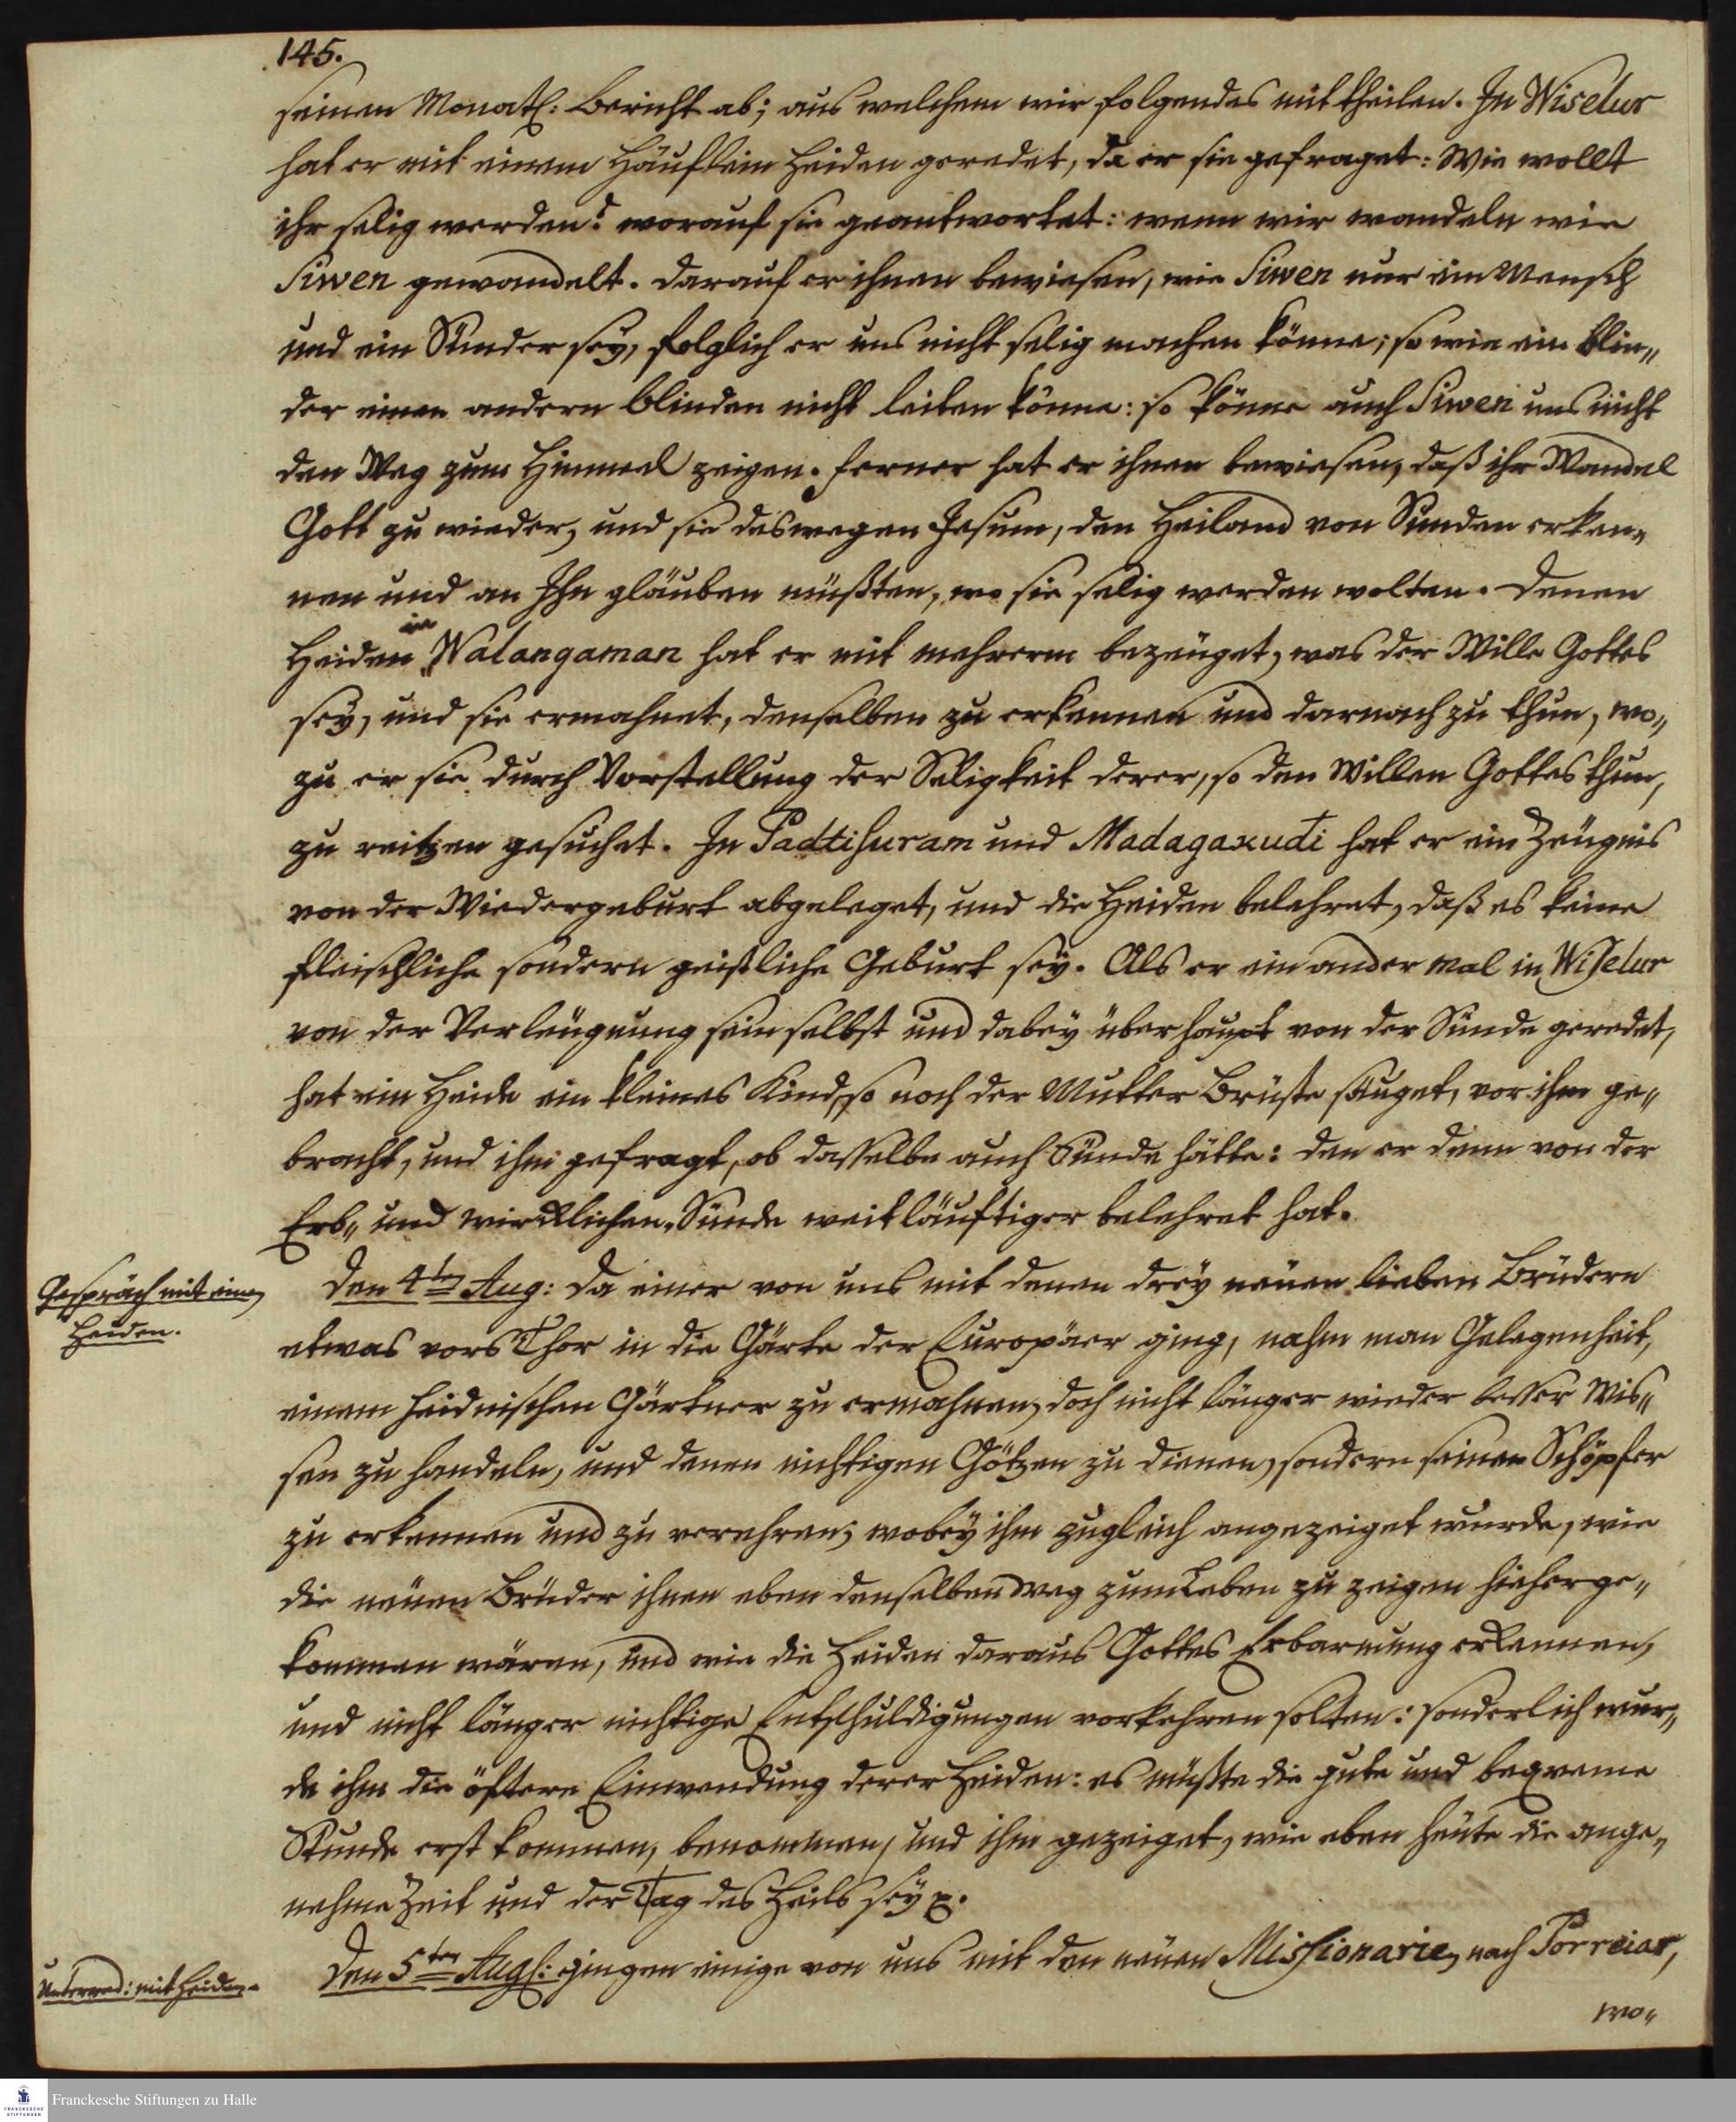 145.
seinen Monatl: Bericht ab; aus welchem wir folgendes mittheilen. In Wiselur
hat er mit einem Häuflein Heiden geredet, da er sie gefraget: Wie wollt
ihr selig werden? worauf sie geantwortet: wenn wir wandeln wie
Siwen gewandelt. Darauf er ihnen bewiesen, wie Siwen nur ein Mensch
und ein Sünder sey, folglich er uns nicht selig machen könne; so wie ein blin„
der einen andern blinden nicht leiten könne: so könne auch Siwen uns nicht
den Weg zum Himmel zeigen. Ferner hat er ihnen bewiesen, daß ihr Wandel
Gott zu wieder, und sie deswegen Jesum, den Heiland von Sünden erken„
nen und an Ihn gläuben müßten, wo sie selig werden wolten. Denen
Heiden in Walangaman hat er mit mehrerm bezeüget, was der Wille Gottes
sey, und sie ermahnet, denselben zu erkennen und darnach zu thun, wo„
zu er sie durch Vorstellung der Seligkeit derer, so den Willen Gottes thun,
zu reitzen gesuchet. In Padtisuram und Madagaxudi hat er ein Zeügnis
von der Wiedergeburt abgeleget, und die Heiden belehret, daß es keine
fleischliche sondern geistliche Geburt sey. Als er ein ander mal in Wiselur
von der Verleügnung sein selbst und dabey überhaupt von der Sünde geredet,
hat ein Heide ein kleines Kind, so noch der Mutter Brüste säuget, vor ihm ge„
bracht, und ihn gefragt, ob dasselbe auch Sünde hätte: den er denn von der
Erb„ und wircklichen Sünde weitläuftiger belehret hat.
Gespräch mit einem
Heiden.
Den 4ten Aug: Da einer von uns mit denen drey neüen lieben Brüdern
etwas vors Thor in die Gärte der Europäer ging, nahm man Gelegenheit,
einem heidnischen Gärtner zu ermahnen, doch nicht länger wieder besser Wis„
sen zu handeln, und denen nichtigen Götzen zu dienen, sondern seinen Schöpfer
zu erkennen und zu verehren; wobey ihm zugleich angezeiget wurde, wie
die neüen Brüder ihnen eben denselben weg zum Leben zu zeigen hieherge„
kommen wären, und wie die Heiden daraus Gottes Erbarmung erkennen,
und nicht länger nichtige Entschuldigungen vorkehren solten: sonderlich wur„
de ihm die öftere Einwendung derer Heiden: es müßte die gute und beqveme
Stunde erst kommen, benommen, und ihm gezeiget, wie eben heüte die ange„
nehme Zeit und der Tag des Heils sey p.
Unterred: mit Heiden.
Den 5ten Aug: gingen einige von uns mit den neüen Missionarien nach Porreiar,
wo„
Franckesche Stiftungen zu Halle
FRANCKESCHE
STIFTUNGEN